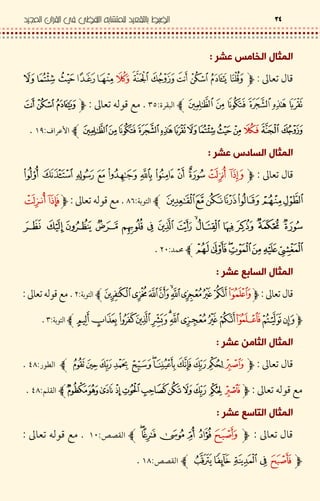 ٢٤ الضبط بالتقعيد للمتشابه اللفظي في القرآن المجيد
المثال الخامس عشر :
قال تعالى : ﴿ وَقُلْنَا يَا آدَمُ اسْكُنْ أَنتَ وَزَوْجُكَ الْجَنَّةَ وَكُلَا مِنْهَا رَغَدًا حَيْثُ شِئْتُمَا وَلَا
تَقْرَبَا هَٰذِهِ الشَّجَرَةَ فَتَكُونَا مِنَ الظَّالِمِينَ ﴾ البقرة:٣٥ . مع قوله تعالى : ﴿ وَيَا آدَمُ اسْكُنْ أَنتَ
وَزَوْجُكَ الْجَنَّةَ فَكُلَا مِنْ حَيْثُ شِئْتُمَا وَلَا تَقْرَبَا هَٰذِهِ الشَّجَرَةَ فَتَكُونَا مِنَ الظَّالِمِينَ ﴾ الأعراف: ١٩ .
المثال السادس عشر :
قال تعالى : ﴿ وَإِذَا أُنزِلَتْ سُورَةٌ أَنْ آمِنُوا بِاللَّهِ وَجَاهِدُوا مَعَ رَسُولِهِ اسْتَأْذَنَكَ أُولُو
الطَّوْلِ مِنْهُمْ وَقَالُوا ذَرْنَا نَكُن مَّعَ الْقَاعِدِينَ ﴾ التوبة:٨٦ . مع قوله تعالى : ﴿ فَإِذَا أُنزِلَتْ
سُورَةٌ مُّحْكَمَةٌ وَذُكِرَ فِيهَا الْقِتَالُ رَأَيْتَ الَّذِينَ فِي قُلُوبِهِم مَّرَضٌ يَنظُرُونَ إِلَيْكَ نَظَرَ
الْمَغْشِيِّ عَلَيْهِ مِنَ الْمَوْتِ فَأَوْلَىٰ لَهُمْ ﴾ محمد: ٢٠ .
المثال السابع عشر :
قال تعالى : ﴿ وَاعْلَمُوا أَنَّكُمْ غَيْرُ مُعْجِزِي اللَّهِ وَأَنَّ اللَّهَ مُخْزِي الْكَافِرِينَ ﴾ التوبة:٢ . مع قوله تعالى :
﴿ وَإِن تَوَلَّيْتُمْ فَاعْلَمُوا أَنَّكُمْ غَيْرُ مُعْجِزِي اللَّهِ وَبَشِّرِ الَّذِينَ كَفَرُوا بِعَذَابٍ أَلِيمٍ ﴾ التوبة:٣.
المثال الثامن عشر :
قال تعالى : ﴿ وَاصْبِرْ لِحُكْمِ رَبِّكَ فَإِنَّكَ بِأَعْيُنِنَا وَسَبِّحْ بِحَمْدِ رَبِّكَ حِينَ تَقُومُ ﴾ الطور:٤٨ .
مع قوله تعالى : ﴿ فَاصْبِرْ لِحُكْمِ رَبِّكَ وَلَا تَكُن كَصَاحِبِ الْحُوتِ إِذْ نَادَىٰ وَهُوَ مَكْظُومٌ ﴾ القلم:٤٨ .
المثال التاسع عشر :
قال تعالى : ﴿ وَأَصْبَحَ فُؤَادُ أُمِّ مُوسَىٰ فَارِغًا ﴾ القصص:١٠ . مع قوله تعالى :
﴿ فَأَصْبَحَ فِي الْمَدِينَةِ خَائِفًا يَتَرَقَّبُ ﴾ القصص:١٨ .